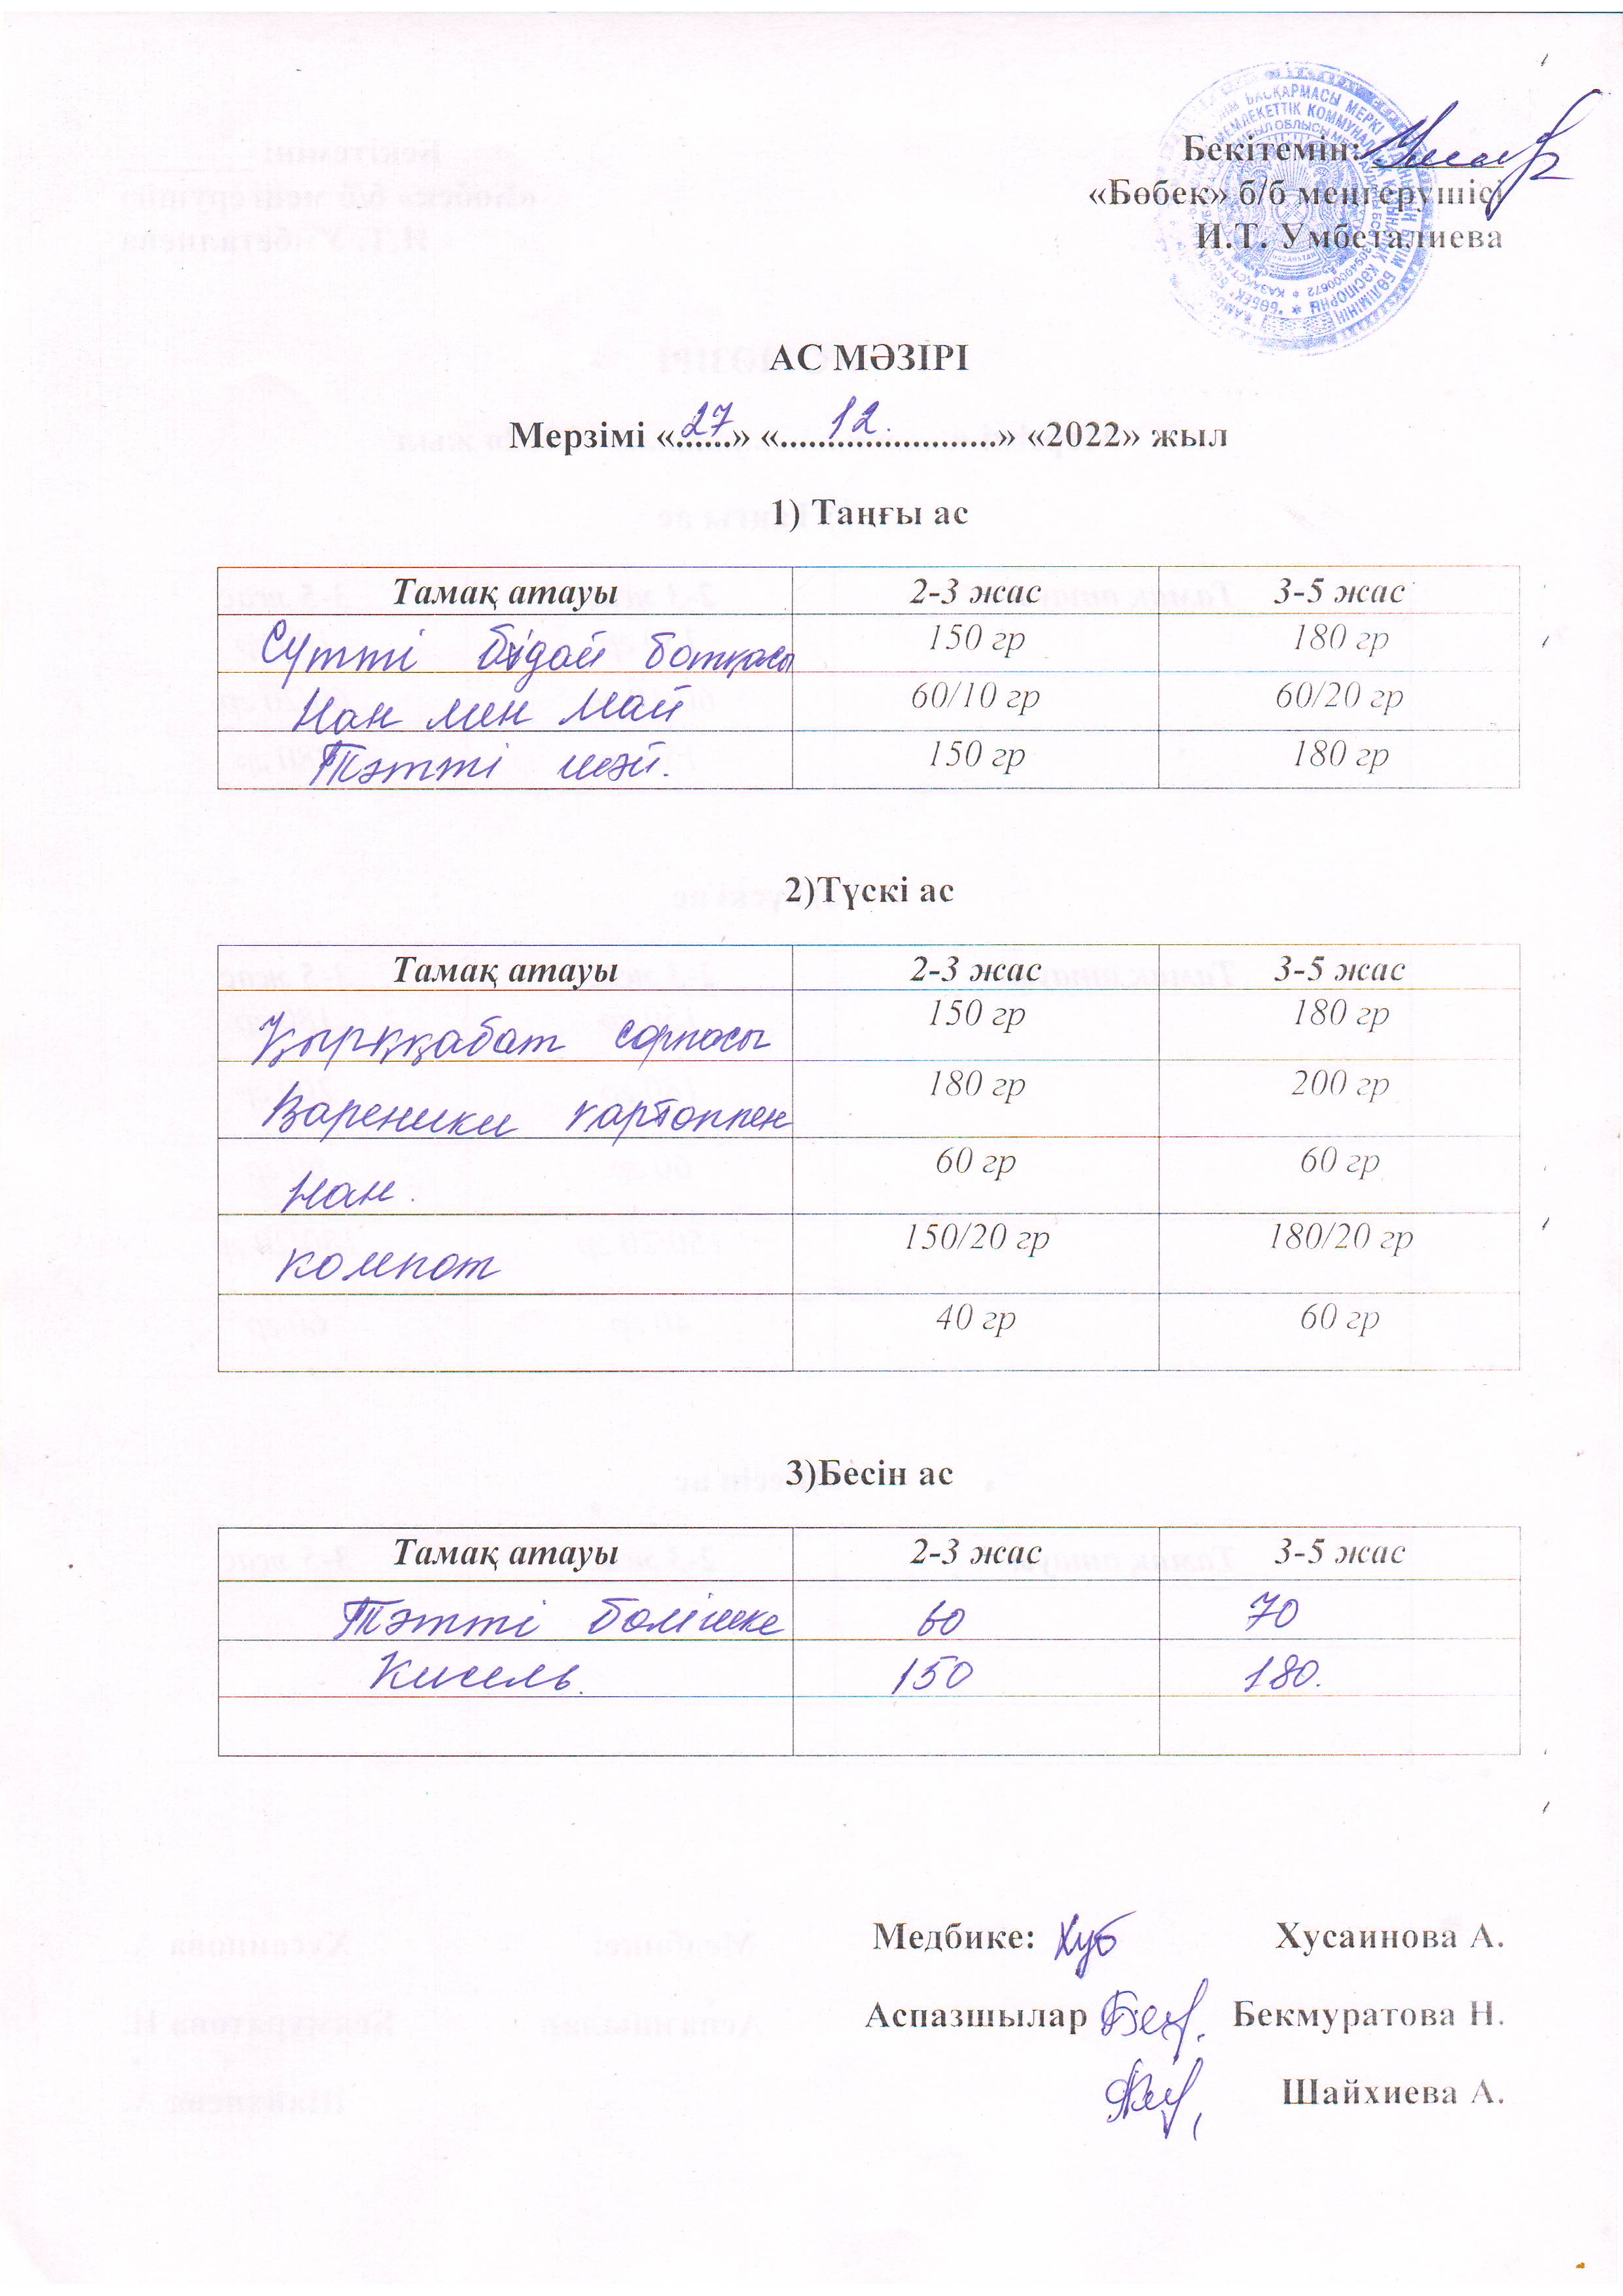 Бекітемін:
«Бөбек» б/б меңгерушісі
И.Т. Умбеталиева
АС МӘЗІРІ
Мерзімі «27» «12.» «2022» жыл
1) Таңғы ас
Тамақ атауы 2-3 жас 3-5 жас
Сүтті бидай ботқасы 150 гр 180 гр
Нан мен май 60/10 гр 60/20 гр
Тәтті шәй. 150 гр 180 гр
2)Түскі ас
Тамақ атауы 2-3 жас 3-5 жас
Қырыққабат сорпасы 150 гр 180 гр
Вареники картоппен 180 гр 200 гр
Нан. 60 гр 60 гр
компот 150/20 гр 180/20 гр
40 гр 60 гр
3)Бесін ас
Тамақ атауы 2-3 жас 3-5 жас
Тәтті бөлішке 60 70
Кисель. 150 180.
Медбике: Хусаинова А.
Аспазшылар Бекмуратова Н.
Шайхиева А.